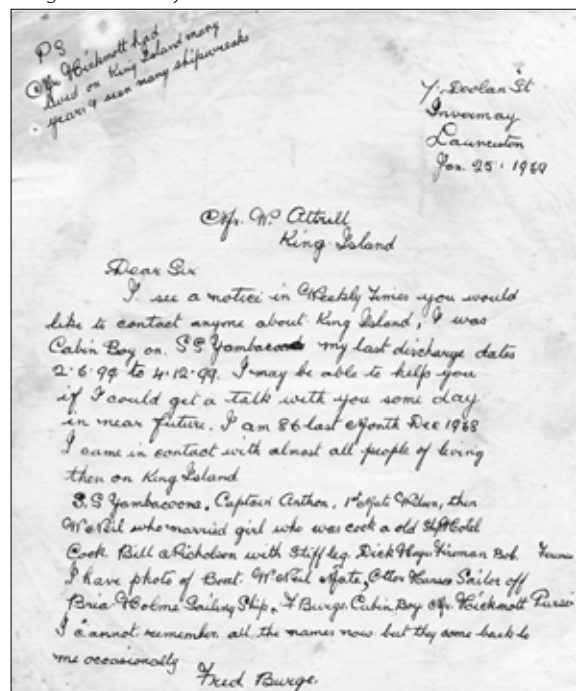 PS
Mr Hickmott had
lived on King Island many
years & seen many shipwrecks
7 Doolan St
Invermay
Launceston
Jan. 25. 1969
Mr. W. Attrill
King Island
Dear Sir
I see a notice in Weekly Times you would
like to contact anyone about King Island, I was
Cabin Boy on. S.S Yambacoona my last discharge dates
2.6.99 to 4.12.99. I may be able to help you
if I could get a talk with you some day
in near future. I am 86 last Month Dec 1968
I came in contact with almost all people of living
then on King Island
S.S Yambacoona, Captain Anthon, 1st Mate Wilson, then
McNeil who married girl who was cook a old Hotel
Cook Bill Nicholson with stiff leg. Dick Hayes Fireman Bob.
I have photo of Boat. McNeil Mate, Otto Hansen Sailor off
Bria Holme Sailing Ship, F Burge. Cabin Boy Mr. Hickmott Purser
I cannot remember all the names now but they come back to
me occasionally
Fred Burge.